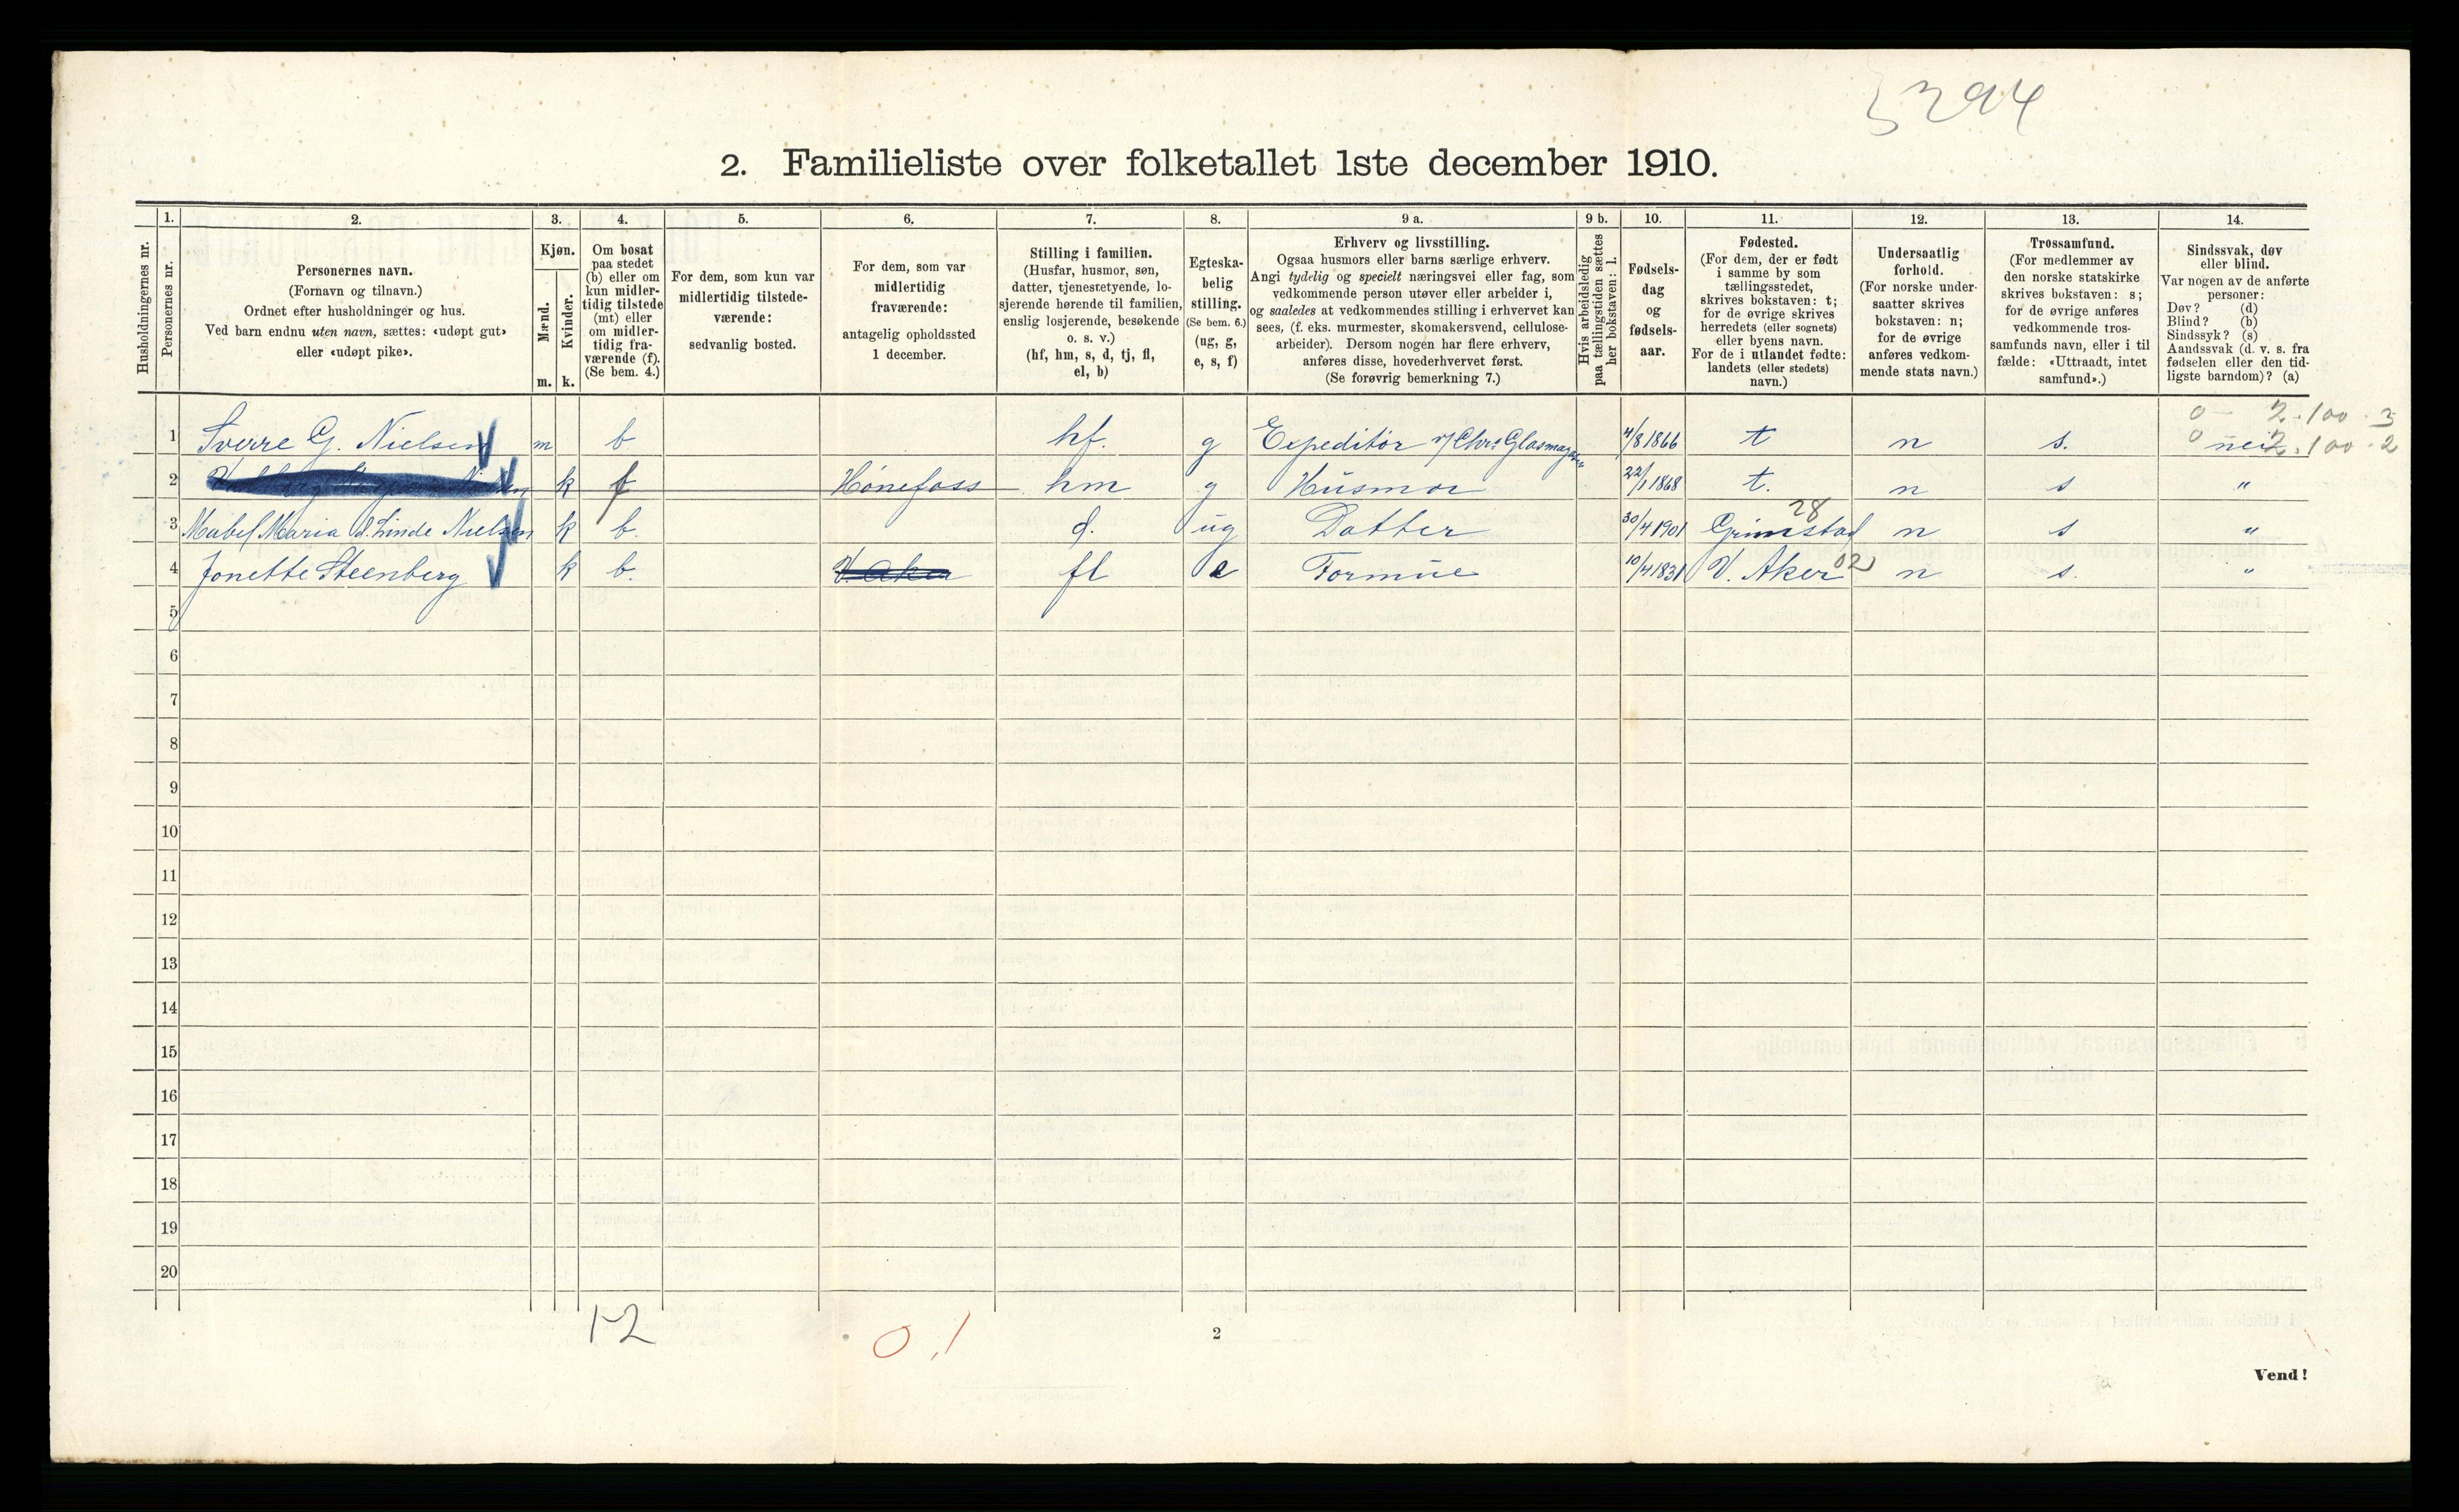 3294
2. Familieliste over folketallet 1ste december 1910.
Husholdningernes nr.
1.
Personernes nr.
2.
Personernes navn.
(Fornavn og tilnavn.)
Ordnet efter husholdninger og hus.
Ved barn endnu uten navn, sættes: «udøpt gut»
eller «udøpt pike».
3.
Kjøn.
Mænd.
Kvinder.
m. k.
4.
Om bosat
paa stedet
(b) eller om
kun midler-
tidig tilstede
(mt) eller
om midler-
tidig fra-
værende (f).
(Se bem. 4.)
5.
For dem, som kun var
midlertidig tilstede-
værende:
sedvanlig bosted.
6.
For dem, som var
midlertidig
fraværende:
antagelig opholdssted
1 december.
7.
Stilling i familien.
(Husfar, husmor, søn,
datter, tjenestetyende, lo-
sjerende hørende til familien,
enslig losjerende, besøkende
o. s. v.)
(hf, hm, s, d, tj, fl,
el, b)
8.
Egteska-
belig
stilling.
(Se bem. 6.)
(ug, g,
e, s, f)
9 a.
Erhverv og livsstilling.
Ogsaa husmors eller barns særlige erhverv.
Angi tydelig og specielt næringsvei eller fag, som
vedkommende person utøver eller arbeider i,
og saaledes at vedkommendes stilling i erhvervet kan
sees, (f. eks. murmester, skomakersvend, cellulose-
arbeider). Dersom nogen har flere erhverv,
anføres disse, hovederhvervet først.
(Se forøvrig bemerkning 7.)
9 b.
Hvis arbeidsledig
paa tællingstiden sættes
her bokstaven: l.
10.
Fødsels-
dag
og
fødsels-
aar.
11.
Fødested.
(For dem, der er født
i samme by som
tællingsstedet,
skrives bokstaven: t;
for de øvrige skrives
herredets (eller sognets)
eller byens navn.
For de i utlandet fødte:
landets (eller stedets)
navn.)
12.
Undersaatlig
forhold.
(For norske under-
saatter skrives
bokstaven: n;
for de øvrige
anføres vedkom-
mende stats navn.)
13.
Trossamfund.
(For medlemmer av
den norske statskirke
skrives bokstaven: s;
for de øvrige anføres
vedkommende tros-
samfunds navn, eller i til
fælde: «Uttraadt, intet
samfund».)
14.
Sindssvak, døv
eller blind.
Var nogen av de anførte
personer:
Døv? (d)
Blind? (b)
Sindssyk? (s)
Aandssvak (d. v. s. fra
fødselen eller den tid-
ligste barndom)? (a)
0 — 2.100.3
1 Sverre G. Nielsen m b hf. g Expeditør v/Chra Glasmagasin 4/8 1866 t n s. 0 nei 2.100.2
2 k f Hønefoss hm g Husmor 22/1 1868 t. n s "
28
3 Mabel Maria d. Linde Nielsen k b. d. ug Datter 30/4 1901 Grimstad n s "
4 Jonette Steenberg k b. V. Aker fl e Formue 10/4 1831 V. Aker 02 n s. "
5
6
7
8
9
10
11
12
13
14
15
16
17
18
19
20
1-2
0.1
2
Vend!